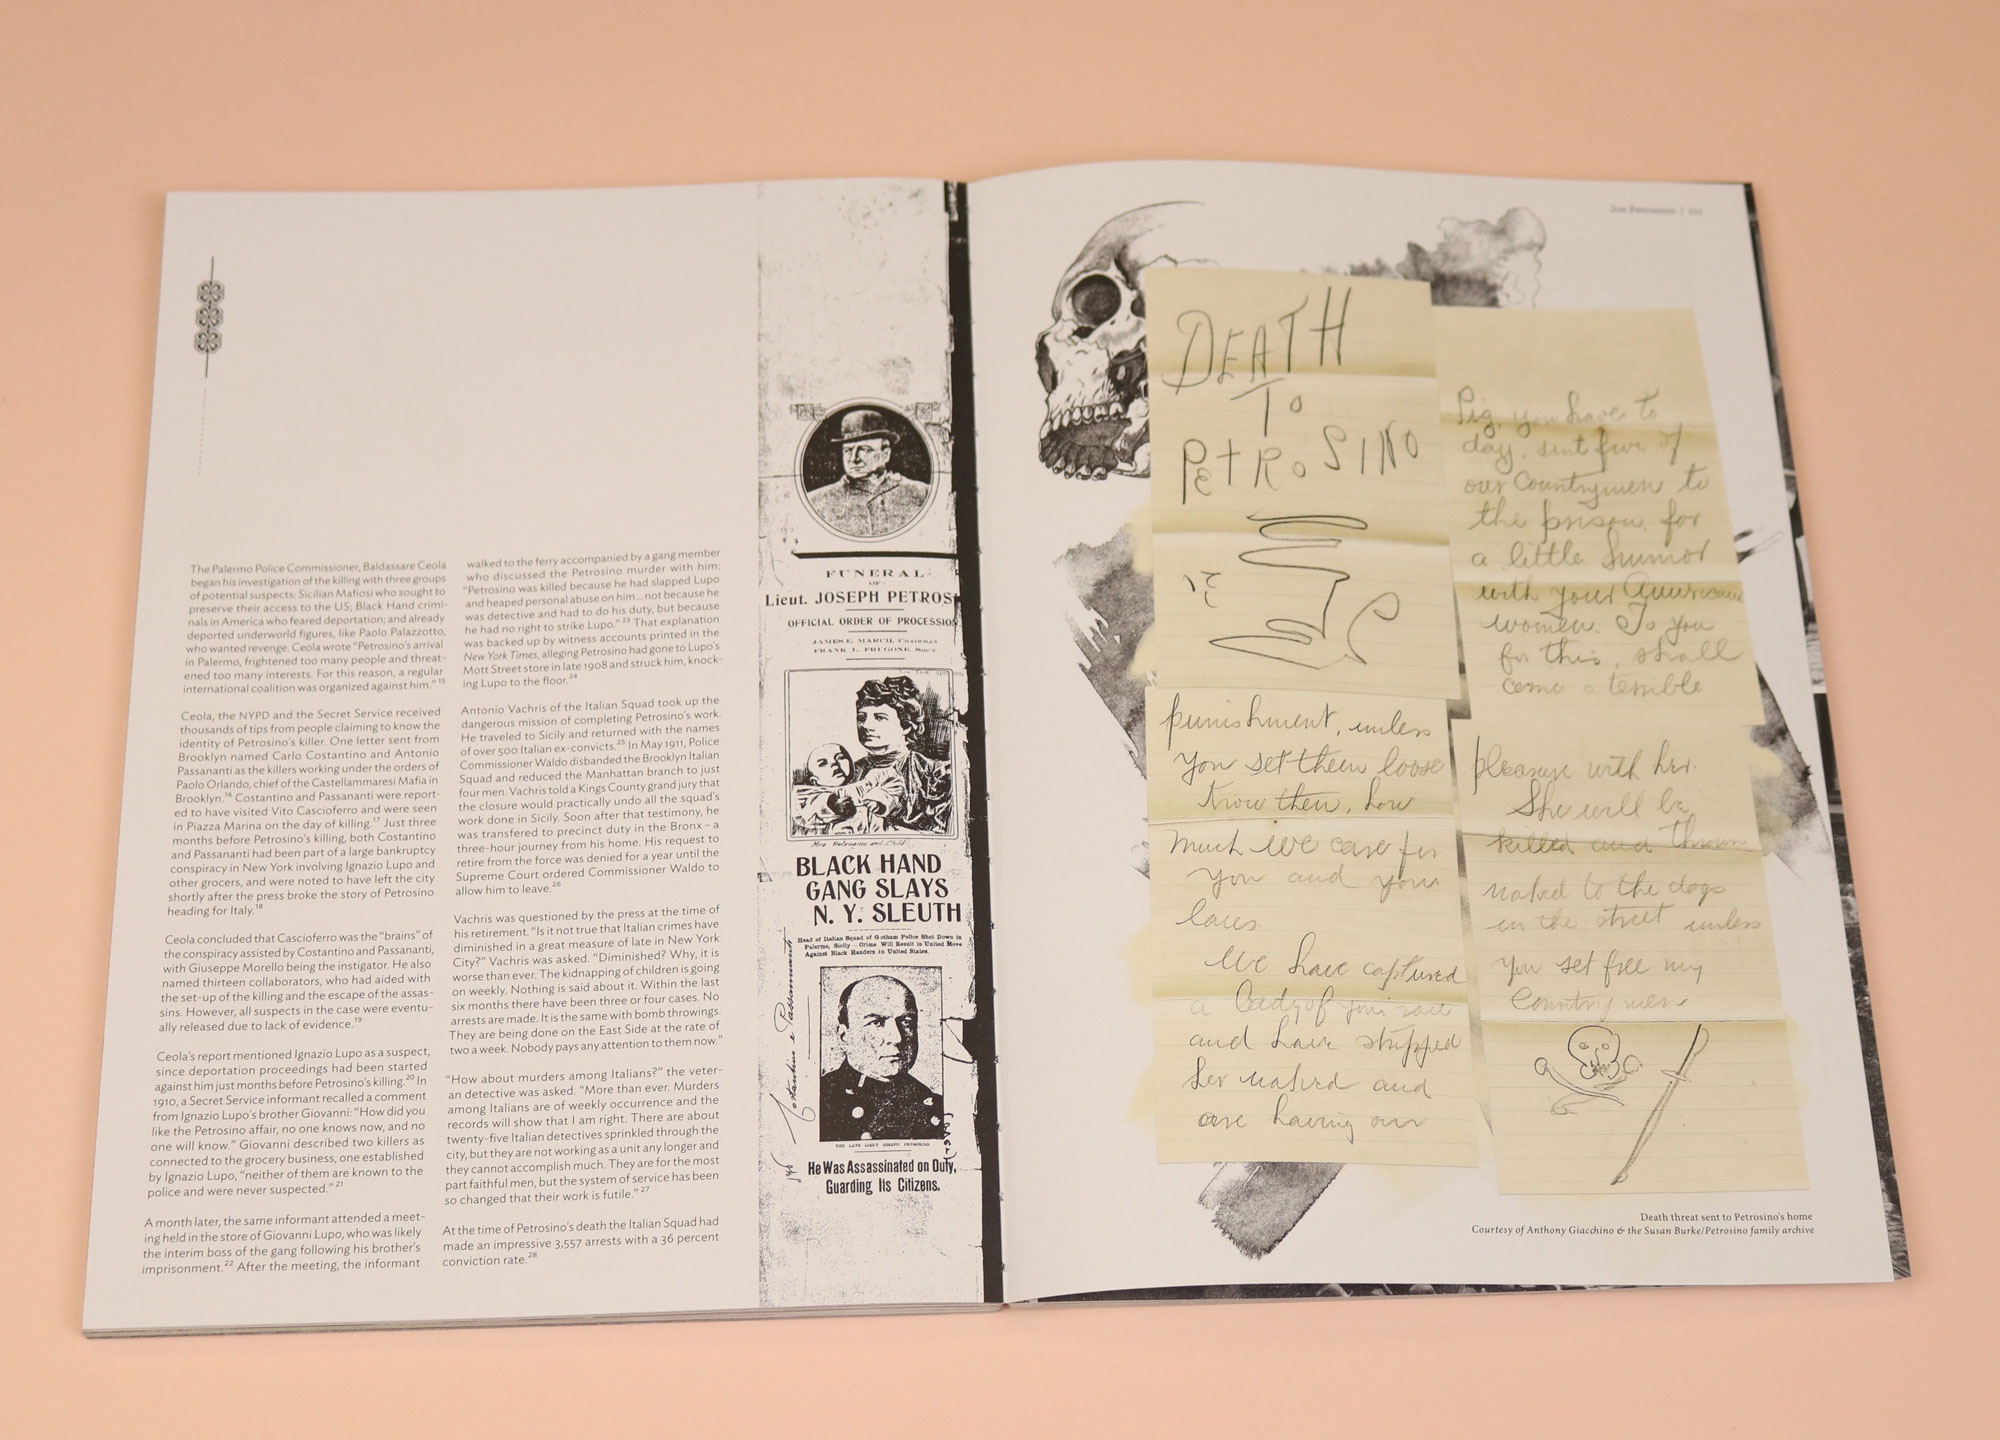 The Palermo Police Commissioner, Baldassare Ceola
began his investigation of the killing with three groups
of potential suspects: Sicilian Mafiosi who sought to
preserve their access to the US; Black Hand crimi-
nals in America who feared deportation; and already
deported underworld figures, like Paolo Palazzotto,
who wanted revenge. Ceola wrote “Petrosino’s arrival
in Palermo, frightened too many people and threat-
ened too many interests. For this reason, a regular
international coalition was organized against him.” 15
Ceola, the NYPD and the Secret Service received
thousands of tips from people claiming to know the
identity of Petrosino’s killer. One letter sent from
Brooklyn named Carlo Costantino and Antonio
Passananti as the killers working under the orders of
Paolo Orlando, chief of the Castellammaresi Mafia in
Brooklyn.16 Costantino and Passananti were report-
ed to have visited Vito Cascioferro and were seen
in Piazza Marina on the day of killing.17 Just three
months before Petrosino’s killing, both Costantino
and Passananti had been part of a large bankruptcy
conspiracy in New York involving Ignazio Lupo and
other grocers, and were noted to have left the city
shortly after the press broke the story of Petrosino
heading for Italy.18
Ceola concluded that Cascioferro was the “brains” of
the conspiracy assisted by Costantino and Passananti,
with Giuseppe Morello being the instigator. He also
named thirteen collaborators, who had aided with
the set-up of the killing and the escape of the assas-
sins. However, all suspects in the case were eventu-
ally released due to lack of evidence.19
Ceola’s report mentioned Ignazio Lupo as a suspect,
since deportation proceedings had been started
against him just months before Petrosino’s killing.20 In
1910, a Secret Service informant recalled a comment
from Ignazio Lupo’s brother Giovanni: “How did you
like the Petrosino affair, no one knows now, and no
one will know.” Giovanni described two killers as
connected to the grocery business, one established
by Ignazio Lupo, “neither of them are known to the
police and were never suspected.” 21
A month later, the same informant attended a meet-
ing held in the store of Giovanni Lupo, who was likely
the interim boss of the gang following his brother’s
imprisonment.22 After the meeting, the informant
walked to the ferry accompanied by a gang member
who discussed the Petrosino murder with him:
“Petrosino was killed because he had slapped Lupo
and heaped personal abuse on him...not because he
was detective and had to do his duty, but because
he had no right to strike Lupo.” 23 That explanation
was backed up by witness accounts printed in the
New York Times, alleging Petrosino had gone to Lupo’s
Mott Street store in late 1908 and struck him, knock-
ing Lupo to the floor.24
Antonio Vachris of the Italian Squad took up the
dangerous mission of completing Petrosino’s work.
He traveled to Sicily and returned with the names
of over 500 Italian ex-convicts.25 In May 1911, Police
Commissioner Waldo disbanded the Brooklyn Italian
Squad and reduced the Manhattan branch to just
four men. Vachris told a Kings County grand jury that
the closure would practically undo all the squad’s
work done in Sicily. Soon after that testimony, he
was transfered to precinct duty in the Bronx – a
three-hour journey from his home. His request to
retire from the force was denied for a year until the
Supreme Court ordered Commissioner Waldo to
allow him to leave.26
Vachris was questioned by the press at the time of
his retirement. “Is it not true that Italian crimes have
diminished in a great measure of late in New York
City?” Vachris was asked. “Diminished? Why, it is
worse than ever. The kidnapping of children is going
on weekly. Nothing is said about it. Within the last
six months there have been three or four cases. No
arrests are made. It is the same with bomb throwings.
They are being done on the East Side at the rate of
two a week. Nobody pays any attention to them now.”
“How about murders among Italians?” the veter-
an detective was asked. “More than ever. Murders
among Italians are of weekly occurrence and the
records will show that I am right. There are about
twenty-five Italian detectives sprinkled through the
city, but they are not working as a unit any longer and
they cannot accomplish much. They are for the most
part faithful men, but the system of service has been
so changed that their work is futile.” 27
At the time of Petrosino’s death the Italian Squad had
made an impressive 3,557 arrests with a 36 percent
conviction rate.28
FUNERAL
OF
Lieut. JOSEPH PETROS
OFFICIAL ORDER OF PROCESSION
JAMES E. MARCH, CHAIRMAN
FRANK L. FRUGONE, SEC'Y.
Mrs Petrosino and Child
BLACK HAND
GANG SLAYS
N. Y. SLEUTH
Head of Italian Squad of Gotham Police Shot Down in
Palermo, Sicily – Crime Will Result in United Move
Against Black Handers in United States.
Costantino e Passananti
THE LATE LIEUT JOSEPH PETROSINO
He Was Assassinated on Duty,
Guarding Its Citizens.
Joe Petrosino | 103
DEATH
To
PEtRoSINO
Pig, you have to
day, sent five of
our Countrymen to
the prison, for
a little humor
with your American
women. To you
for this, shall
come a terrible
punishment, unless
you set them loose
know then, how
much we care for
you and your
laws.
We have captured
a lady of your race
and have stripped
her naked and
are having our
pleasure with her.
She will be
killed and thrown
naked to the dogs
in the street unless
you set free my
Country men
Death threat sent to Petrosino's home
Courtesy of Anthony Giacchino & the Susan Burke/Petrosino family archive